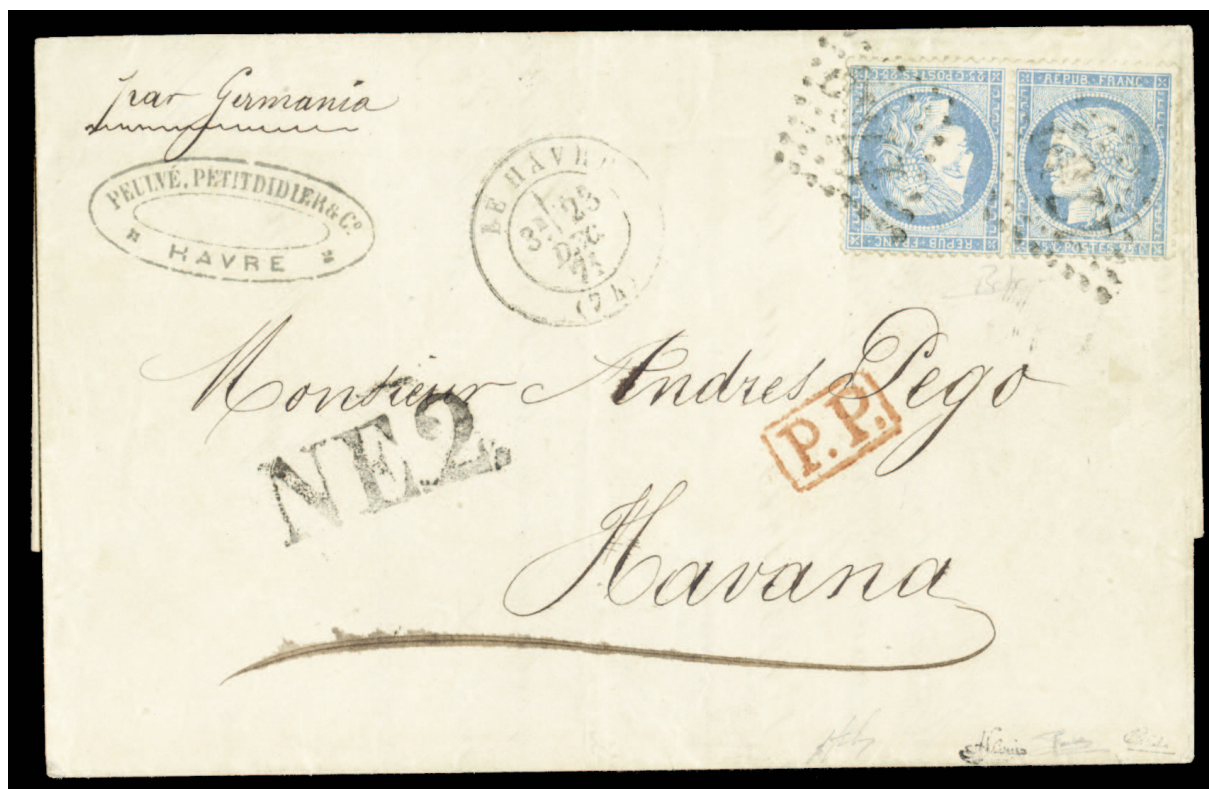 par Germania
PEULVÉ, PETITDIDIER & Co.
HAVRE
LE HAVRE
3E 25
DEC.
71
(74)
25 C. POSTES 25 C.
REPUB. FRANC.
REPUB. FRANC.
25 C. POSTES 25 C.
Monsieur Andres Pego
NE.2.
P.P.
Havana